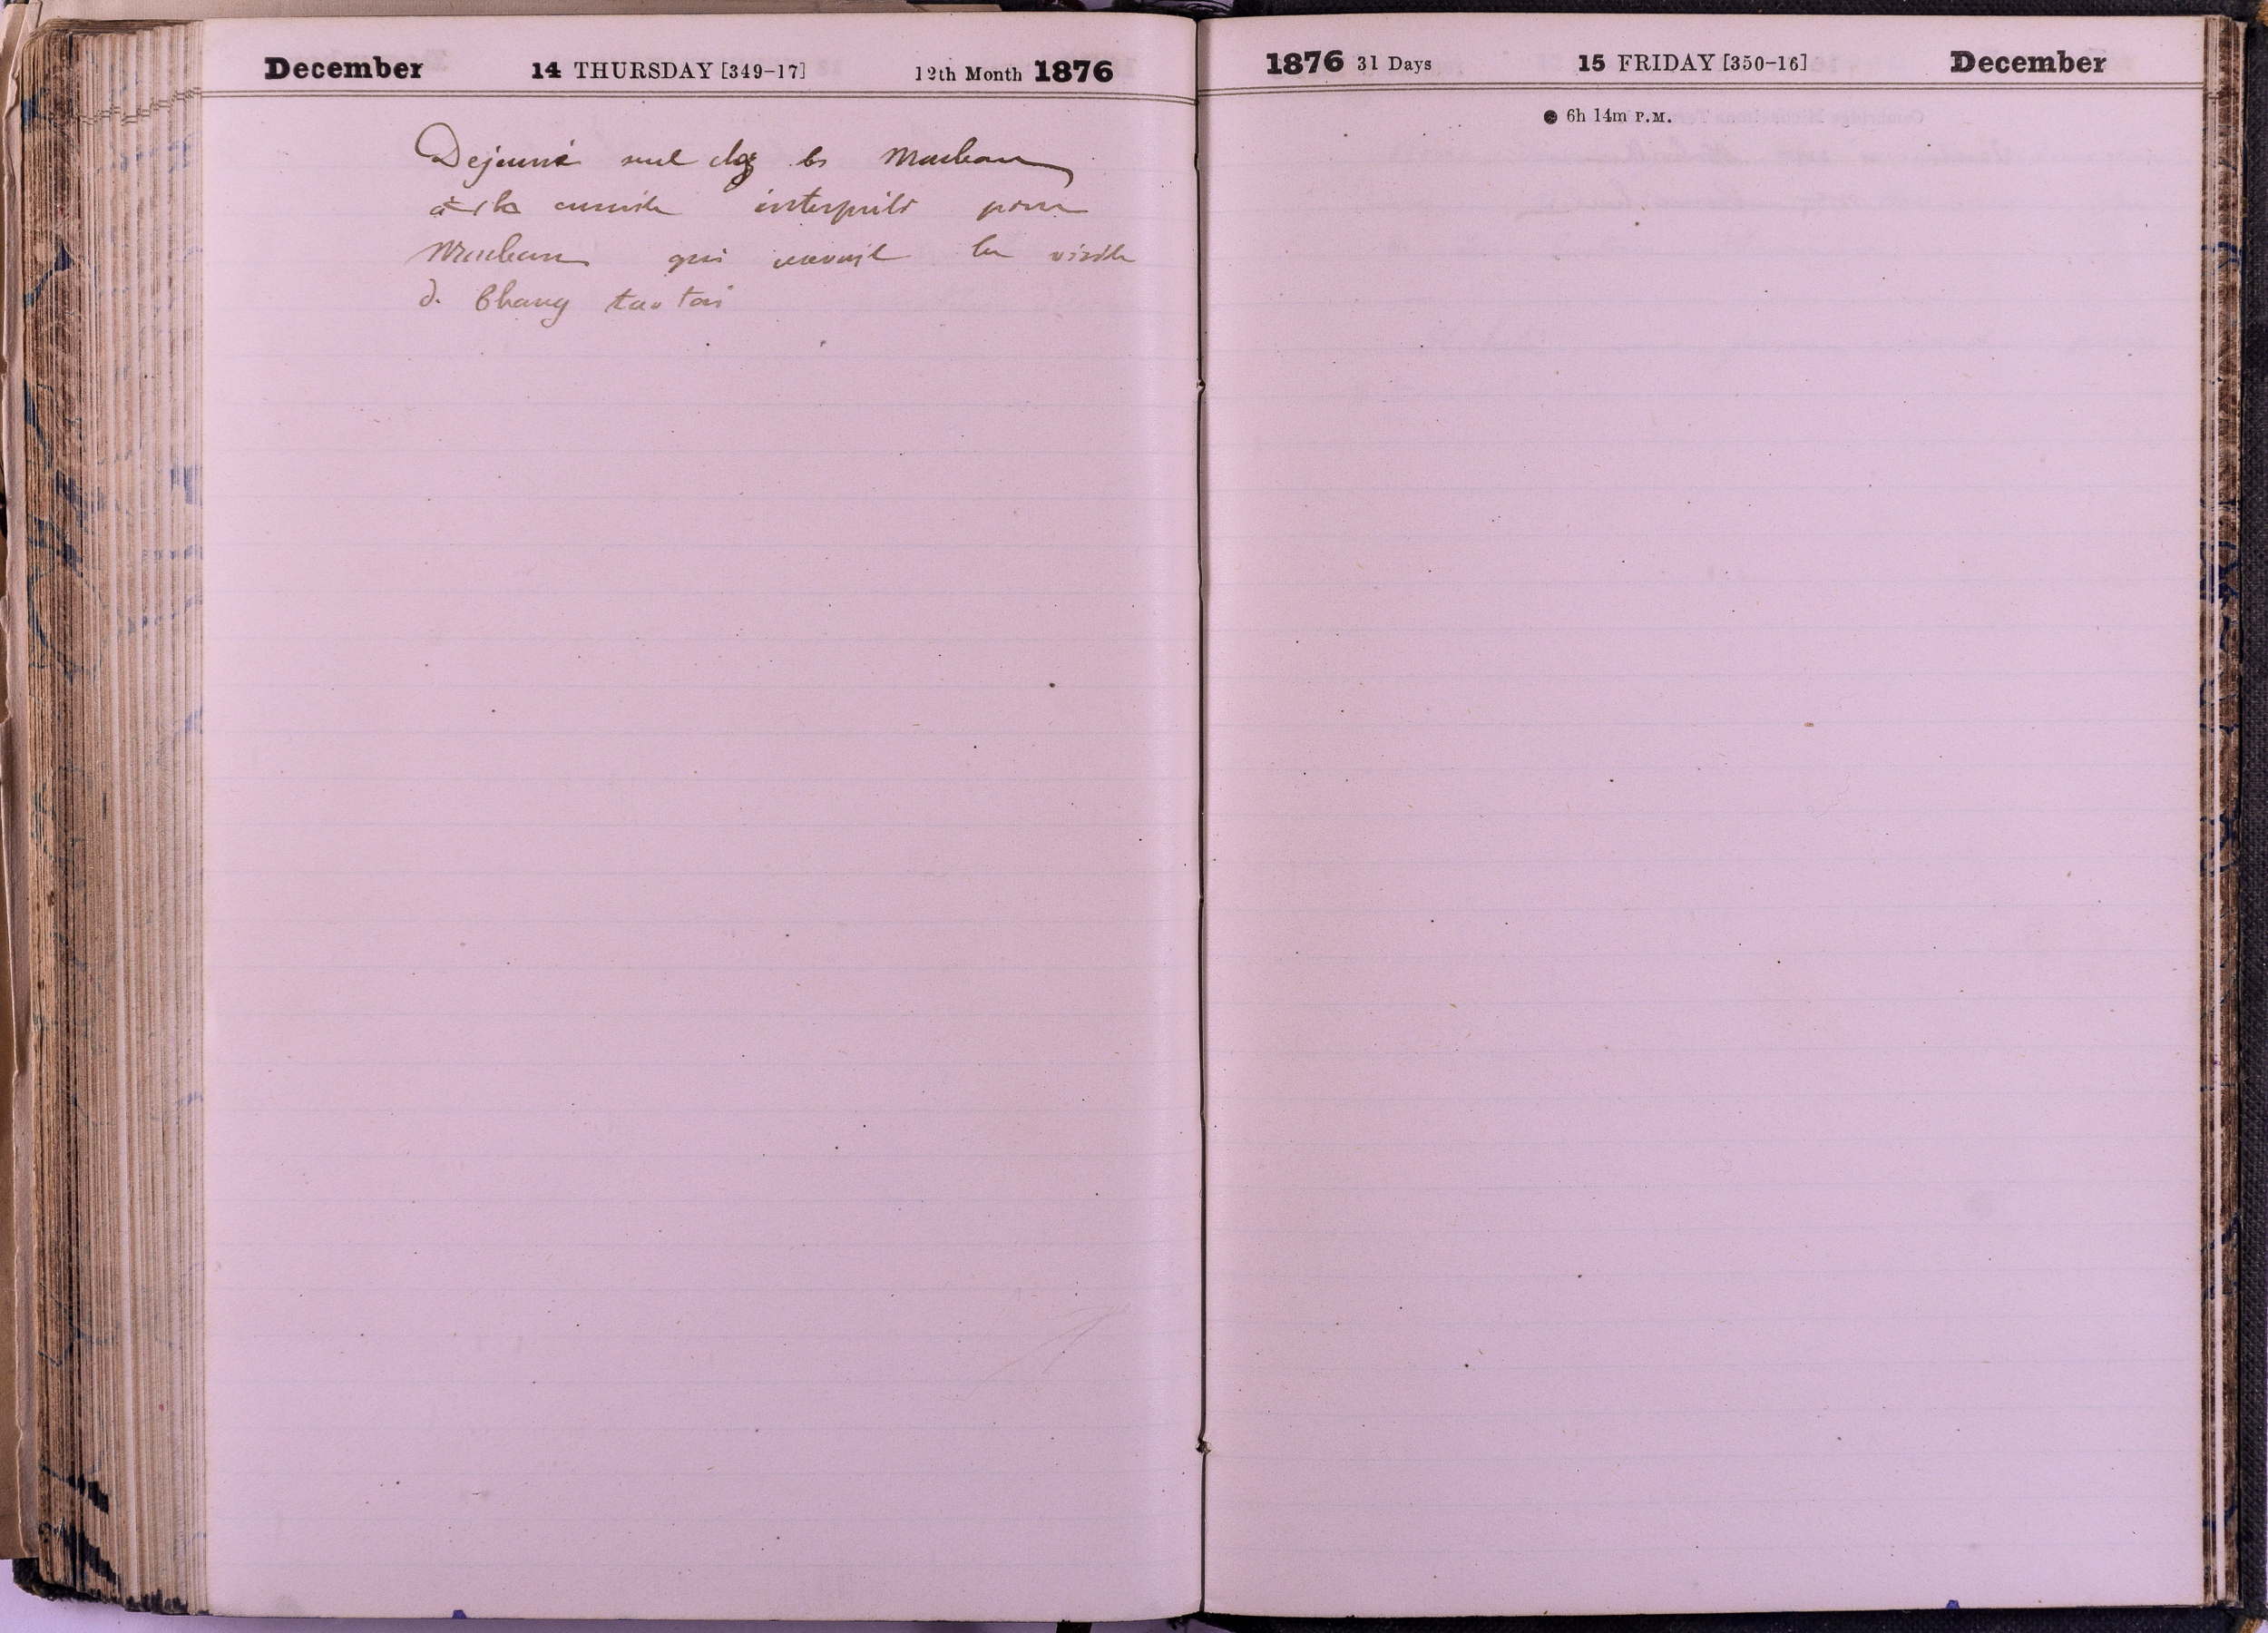 December 14 THURSDAY [349-17] 12th Month 1876
Dejeuné seul chez les Maclean
à la cuisite interprète pour
Maclean qui reevait la visite
d. Chang tao tai
1876 31 Days 15 FRIDAY [350-16] December
● 6h 14m P.M.